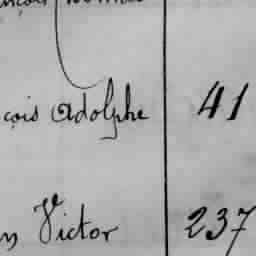 çois Adolphe 41
Victor 237